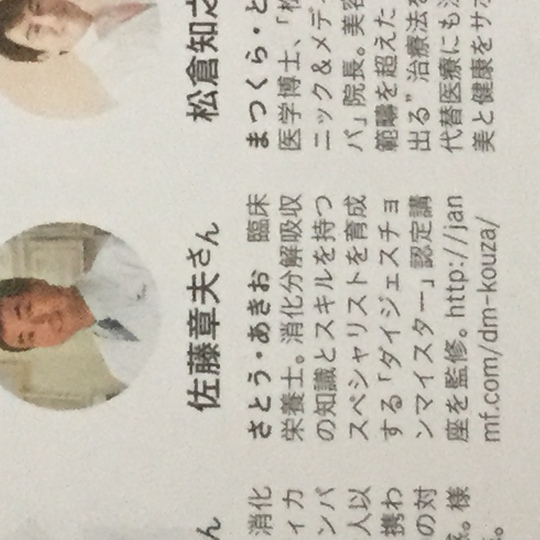 松倉知之
まつくら・と
医学博士、「松
ニック＆メデ
パ」院長。美容
範疇を超えた
出る”治療法を
代替医療にも
美と健康をサポ
佐藤章夫さん
さとう・あきお 臨床
栄養士。消化分解吸収
の知識とスキルを持つ
スペシャリストを育成
する「ダイジェスチョ
ンマイスター」認定講
座を監修。http://jan
mf.com/dm-kouza/
ん
消化
ィカ
ンパ
人以
携わ
の対
。様